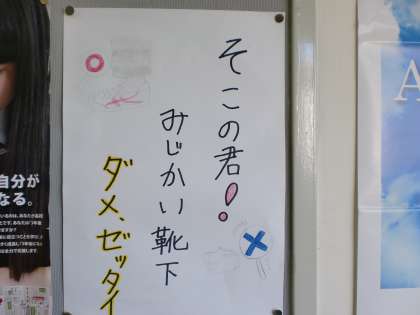 そこの君!
みじかい靴下
ダメ、ゼッタイ
自分が
なる。
A